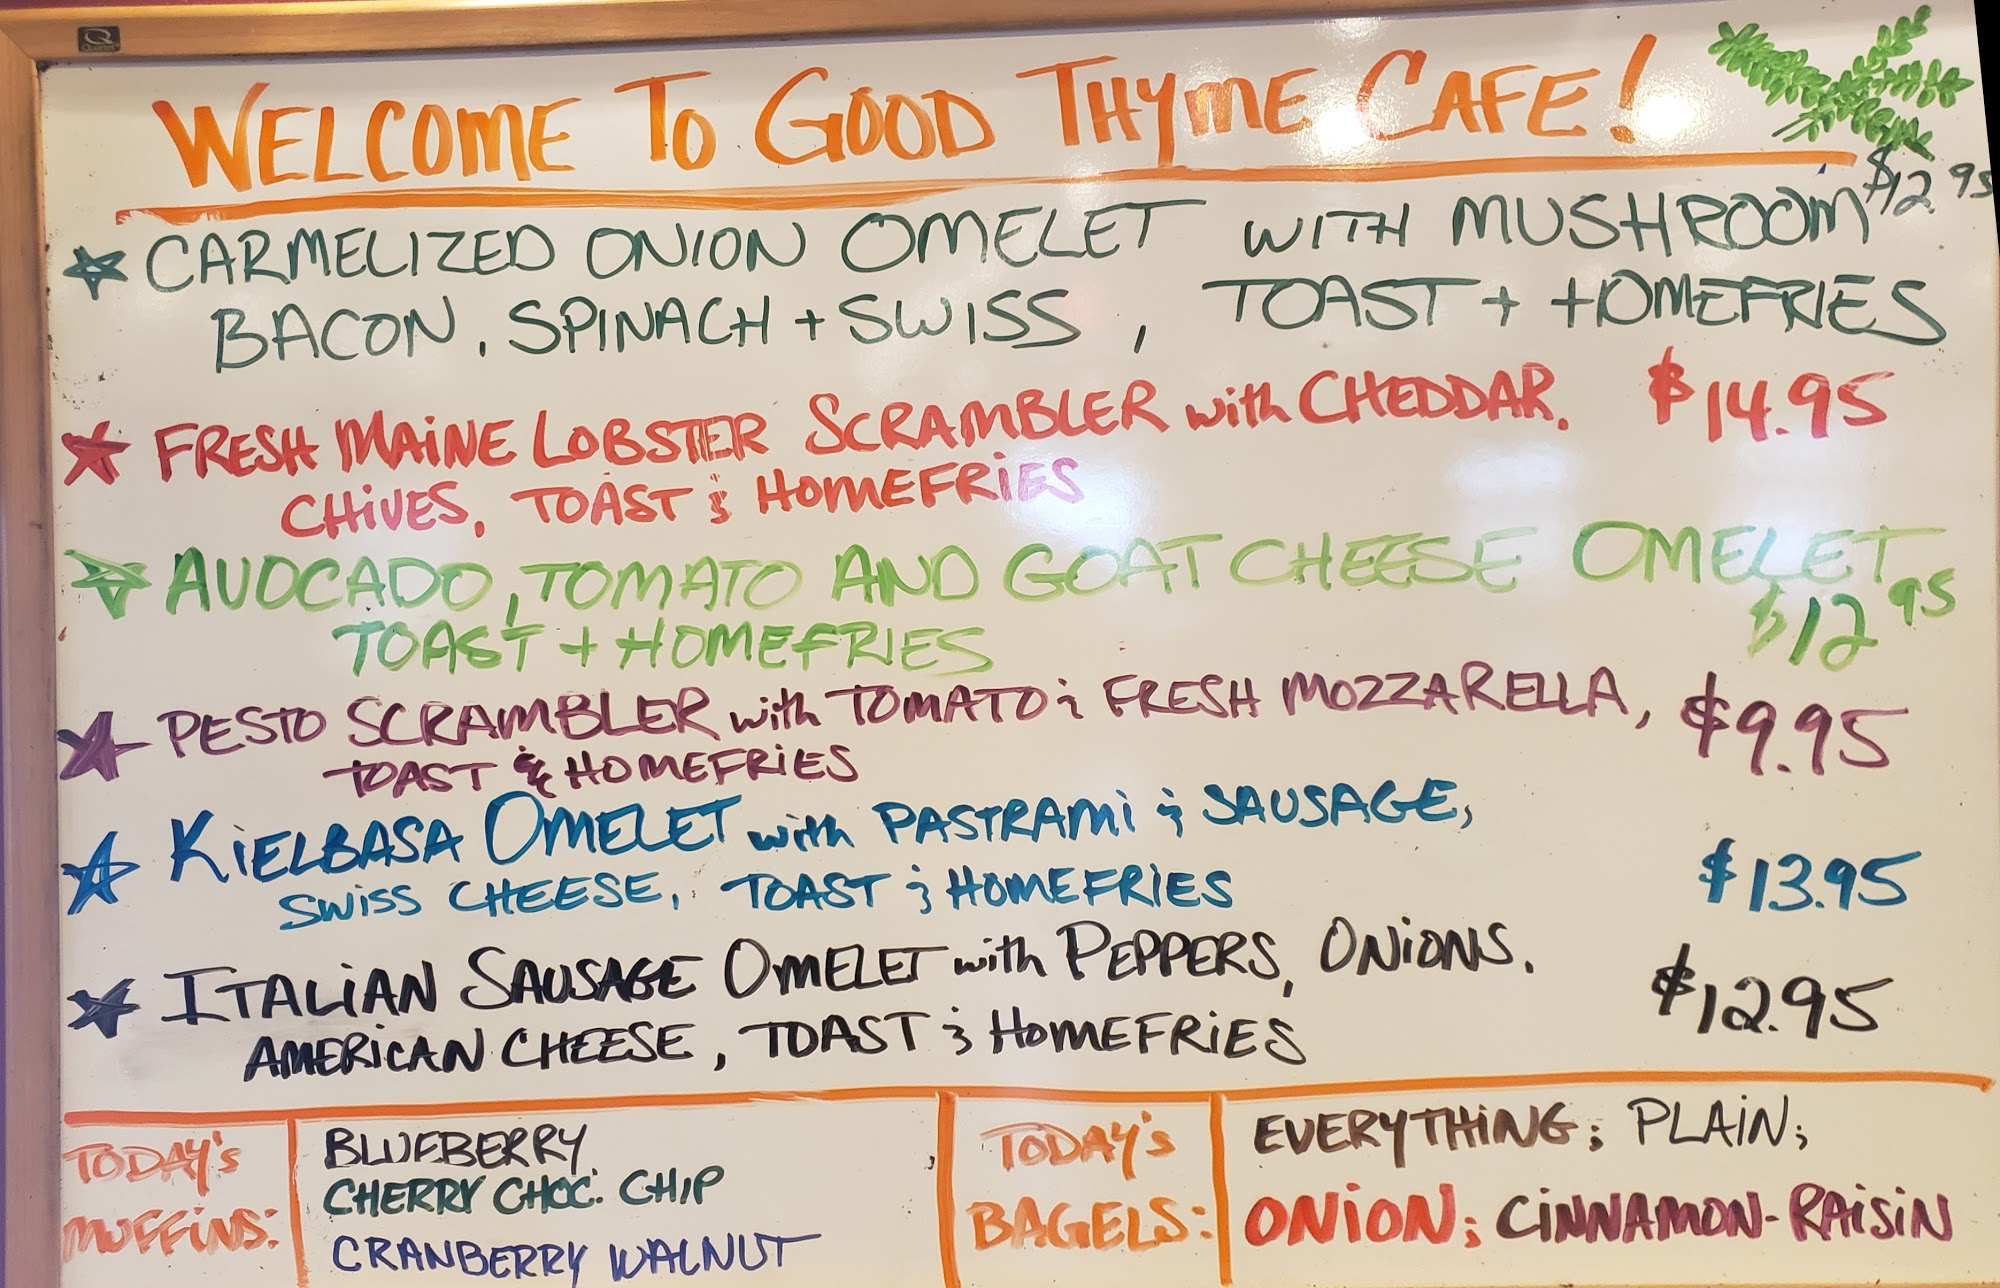 Q
Quartet
WELCOME TO GOOD THYME CAFE!
CARMELIZED ONION OMELET WITH MUSHROOM $12.95
BACON, SPINACH + SWISS, TOAST + HOMEFRIES
FRESH MAINE LOBSTER SCRAMBLER with CHEDDAR. $14.95
CHIVES, TOAST & HOMEFRIES
AVOCADO, TOMATO AND GOAT CHEESE OMELET
TOAST + HOMEFRIES $12.95
PESTO SCRAMBLER with TOMATO & FRESH MOZZARELLA, $9.95
TOAST & HOMEFRIES
KIELBASA OMELET with PASTRAMI & SAUSAGE,
SWISS CHEESE, TOAST & HOMEFRIES $13.95
ITALIAN SAUSAGE OMELET with PEPPERS, ONIONS. $12.95
AMERICAN CHEESE, TOAST & HOMEFRIES
TODAY'S
MUFFINS:
BLUEBERRY
CHERRY CHOC. CHIP
CRANBERRY WALNUT
TODAY'S
BAGELS:
EVERYTHING; PLAIN;
ONION; CINNAMON-RAISIN